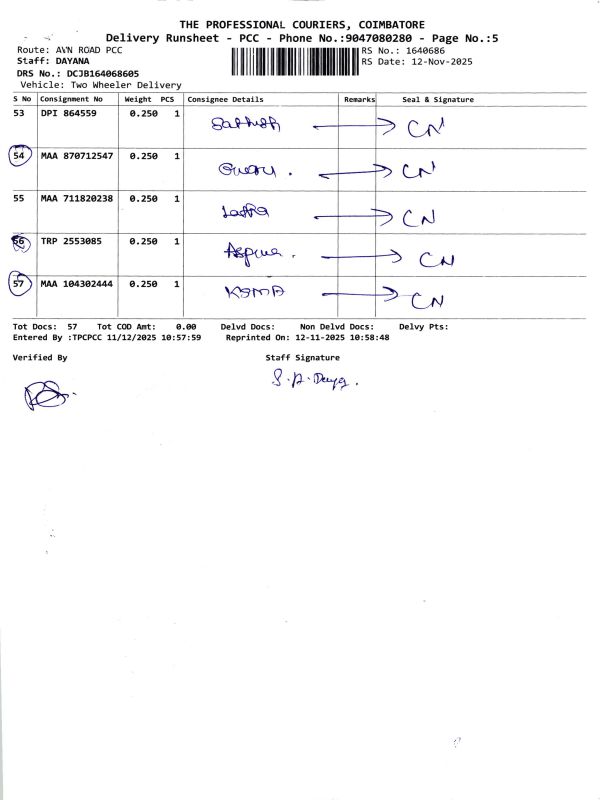 THE PROFESSIONAL COURIERS, COIMBATORE
Delivery Runsheet - PCC - Phone No.:9047080280 - Page No.:5
Route: AVN ROAD PCC RS No.: 1640686
Staff: DAYANA RS Date: 12-Nov-2025
DRS No.: DCJB164068605
Vehicle: Two Wheeler Delivery
S No Consignment No Weight PCS Consignee Details Remarks Seal & Signature
53 DPI 864559 0.250 1 Sathish → CN
54 MAA 870712547 0.250 1 → CN
55 MAA 711820238 0.250 1 → CN
56 TRP 2553085 0.250 1 → CN
57 MAA 104302444 0.250 1 → CN
Tot Docs: 57 Tot COD Amt: 0.00 Delvd Docs: Non Delvd Docs: Delvy Pts:
Entered By :TPCPCC 11/12/2025 10:57:59 Reprinted On: 12-11-2025 10:58:48
Verified By Staff Signature